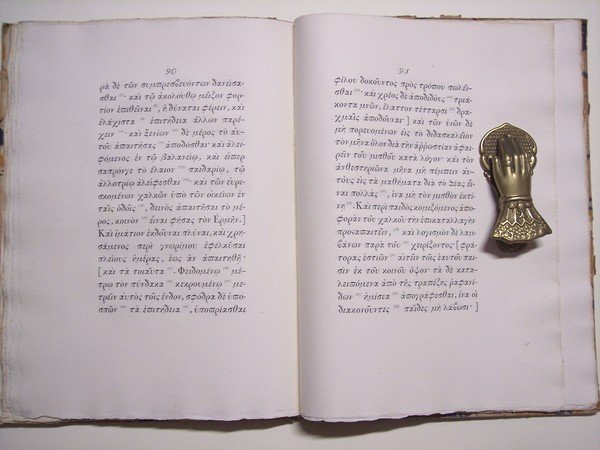 90
ρὰ δὲ τῶν συμπρεσβευόντων δανείσα-
σθαι · καὶ τῷ ἀκολούθῳ μεῖζον φορ-
τίον ἐπιθεῖναι, ἢ δύναται φέρειν, καὶ
ἐλάχιστα ἐπιτήδεια ἄλλων παρέ-
χειν · καὶ ξενίων δὲ μέρος τὸ αὑ-
τοῦ ἀπαιτήσας ἀποδόσθαι καὶ ἀλει-
φόμενος ἐν τῷ βαλανείῳ, καὶ εἰπερ
σαπρόνγε τὸ ἔλαιον παιδαρίῳ, τῷ
ἀλλοτρίῳ ἀλείφεσθαι · καὶ τῶν εὑρι-
σκομένων χαλκῶν ὑπὸ τῶν οἰκείων ἐν
ταῖς ὁδοῖς, δεινὸς ἀπαιτῆσαι τὸ μέ-
ρος, κοινὸν εἶναι φήσας τὸν Ἑρμῆν.]
Καὶ ἱμάτιον ἐκδοῦναι πλῦναι, καὶ χρη-
σάμενος περὶ γνωρίμου ἐφελκῦσαι
πλείους ἡμέρας, ἕως ἂν ἀπαιτηθῇ ·
[καὶ τὰ τοιαῦτα. Φειδομένῳ μέ-
τρῳ τὸν πύνδακα κεκρουμένῳ με-
τρεῖν αὐτὸς τοῖς ἔνδον, σφόδρα δὲ ὑπο-
σπῶν τὰ ἐπιτήδεια, ὑποπρίασθαι
93
φίλου δοκοῦντος πρὸς τρόπου πωλεῖ-
σθαι · καὶ χρέος δὲ ἀποδιδοὺς τριά-
κοντα μνῶν, ἔλαττον τέτταρσι δρα-
χμαῖς ἀποδοῦναι] καὶ τῶν υἱῶν δὲ
μὴ πορευομένων εἰς τὸ διδασκαλεῖον
τὸν μῆνα ὅλον διὰ τὴν ἀρρωστίαν ἀφαι-
ρεῖν τοῦ μισθοῦ κατὰ λόγον · καὶ τὸν
ἀνθεστηριῶνα μῆνα μὴ πέμπειν αὐ-
τοὺς εἰς τὰ μαθήματα διὰ τὸ θέας εἶ-
ναι πολλὰς, ἵνα μὴ τὸν μισθὸν ἐκτί-
νῃ. Καὶ περὶ παιδὸς κομιζόμενος ἀπο-
φορὰν τοῦ χαλκοῦ τὴν ἐπικαταλλαγὴν
προσαπαιτεῖν, καὶ λογισμὸν δὲ λαμ-
βάνων παρὰ τοῦ χειρίζοντος · [φρά-
τορας ἑστιῶν αἰτεῖν τοῖς ἑαυτοῦ παι-
σὶν ἐκ τοῦ κοινοῦ ὄψον · τὰ δὲ κατα-
λειπόμενα ἀπὸ τῆς τραπέζης ῥαφανί-
δων ἡμίσεια ἀπογράφεσθαι, ἵνα οἱ
διακονοῦντες παῖδες μὴ λάβωσι ·]